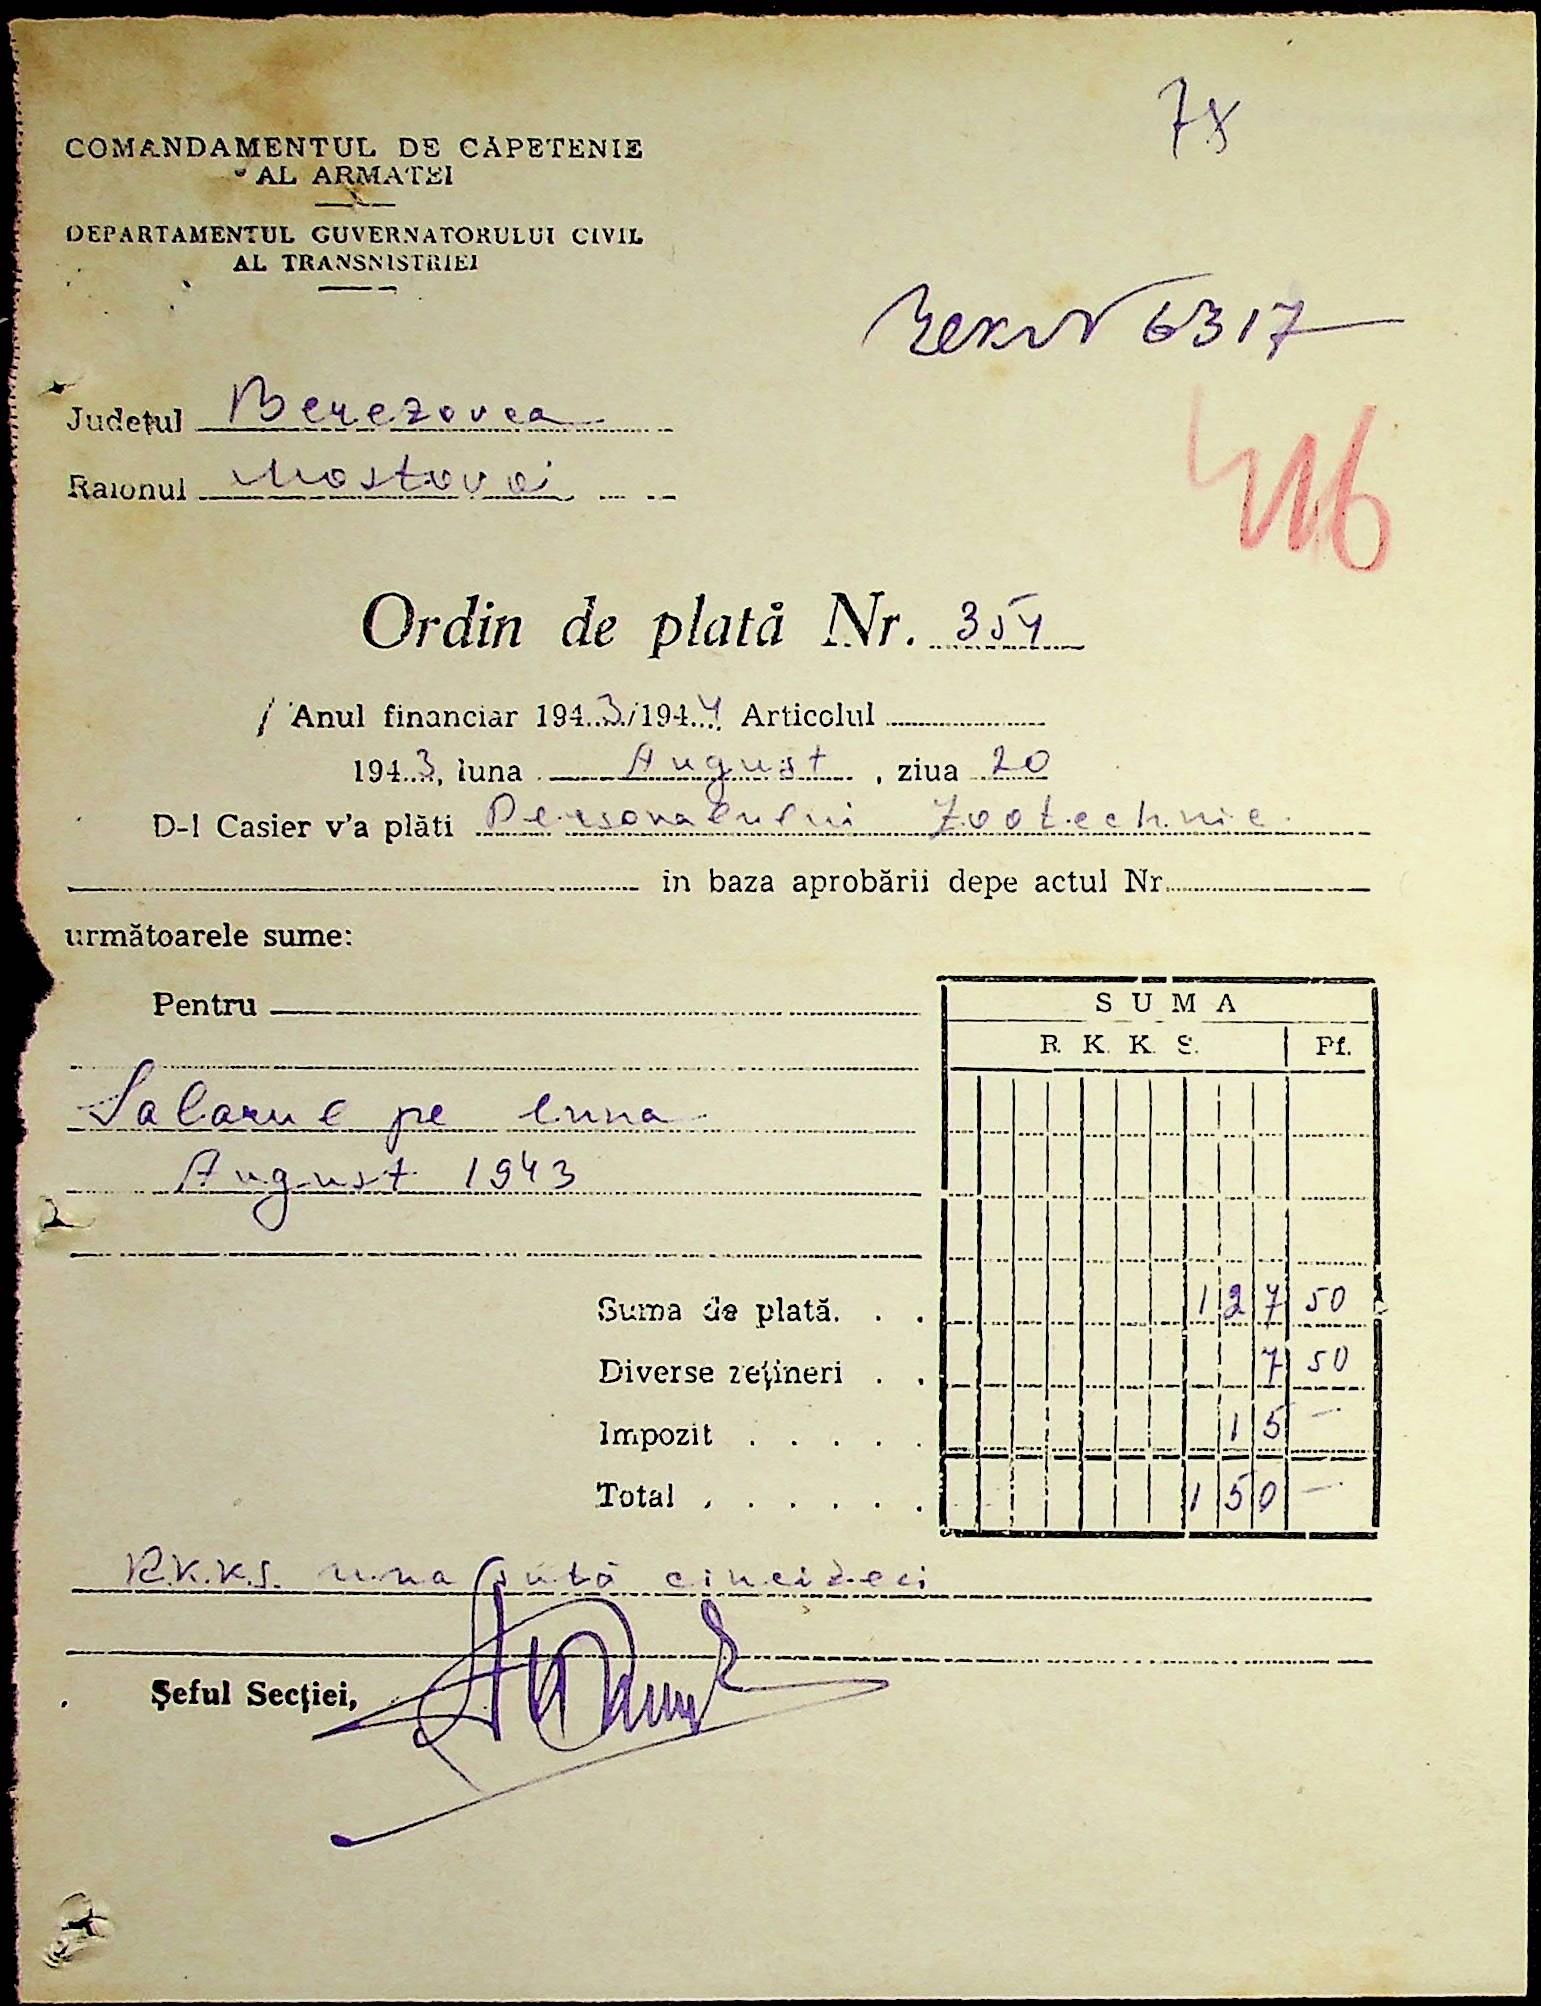 COMANDAMENTUL DE CĂPETENIE
AL ARMATEI
DEPARTAMENTUL GUVERNATORULUI CIVIL
AL TRANSNISTRIEI
6317
Județul Berezovca
Raionul Mostovoi
Ordin de plată Nr. 354
Anul financiar 1943/1944 Articolul
1943, luna August, ziua 20
D-l Casier v'a plăti Personalului Zootechnic
in baza aprobării depe actul Nr.
următoarele sume:
Pentru
Salarul pe luna
August 1943
SUMA
R. K. K. S. Pf.
Suma de plată. . . 127 50
Diverse rețineri . . 7 50
Impozit . . . . . 15 —
Total . . . . . . 150 —
R.K.K.S. una sută cincizeci
Șeful Secției,